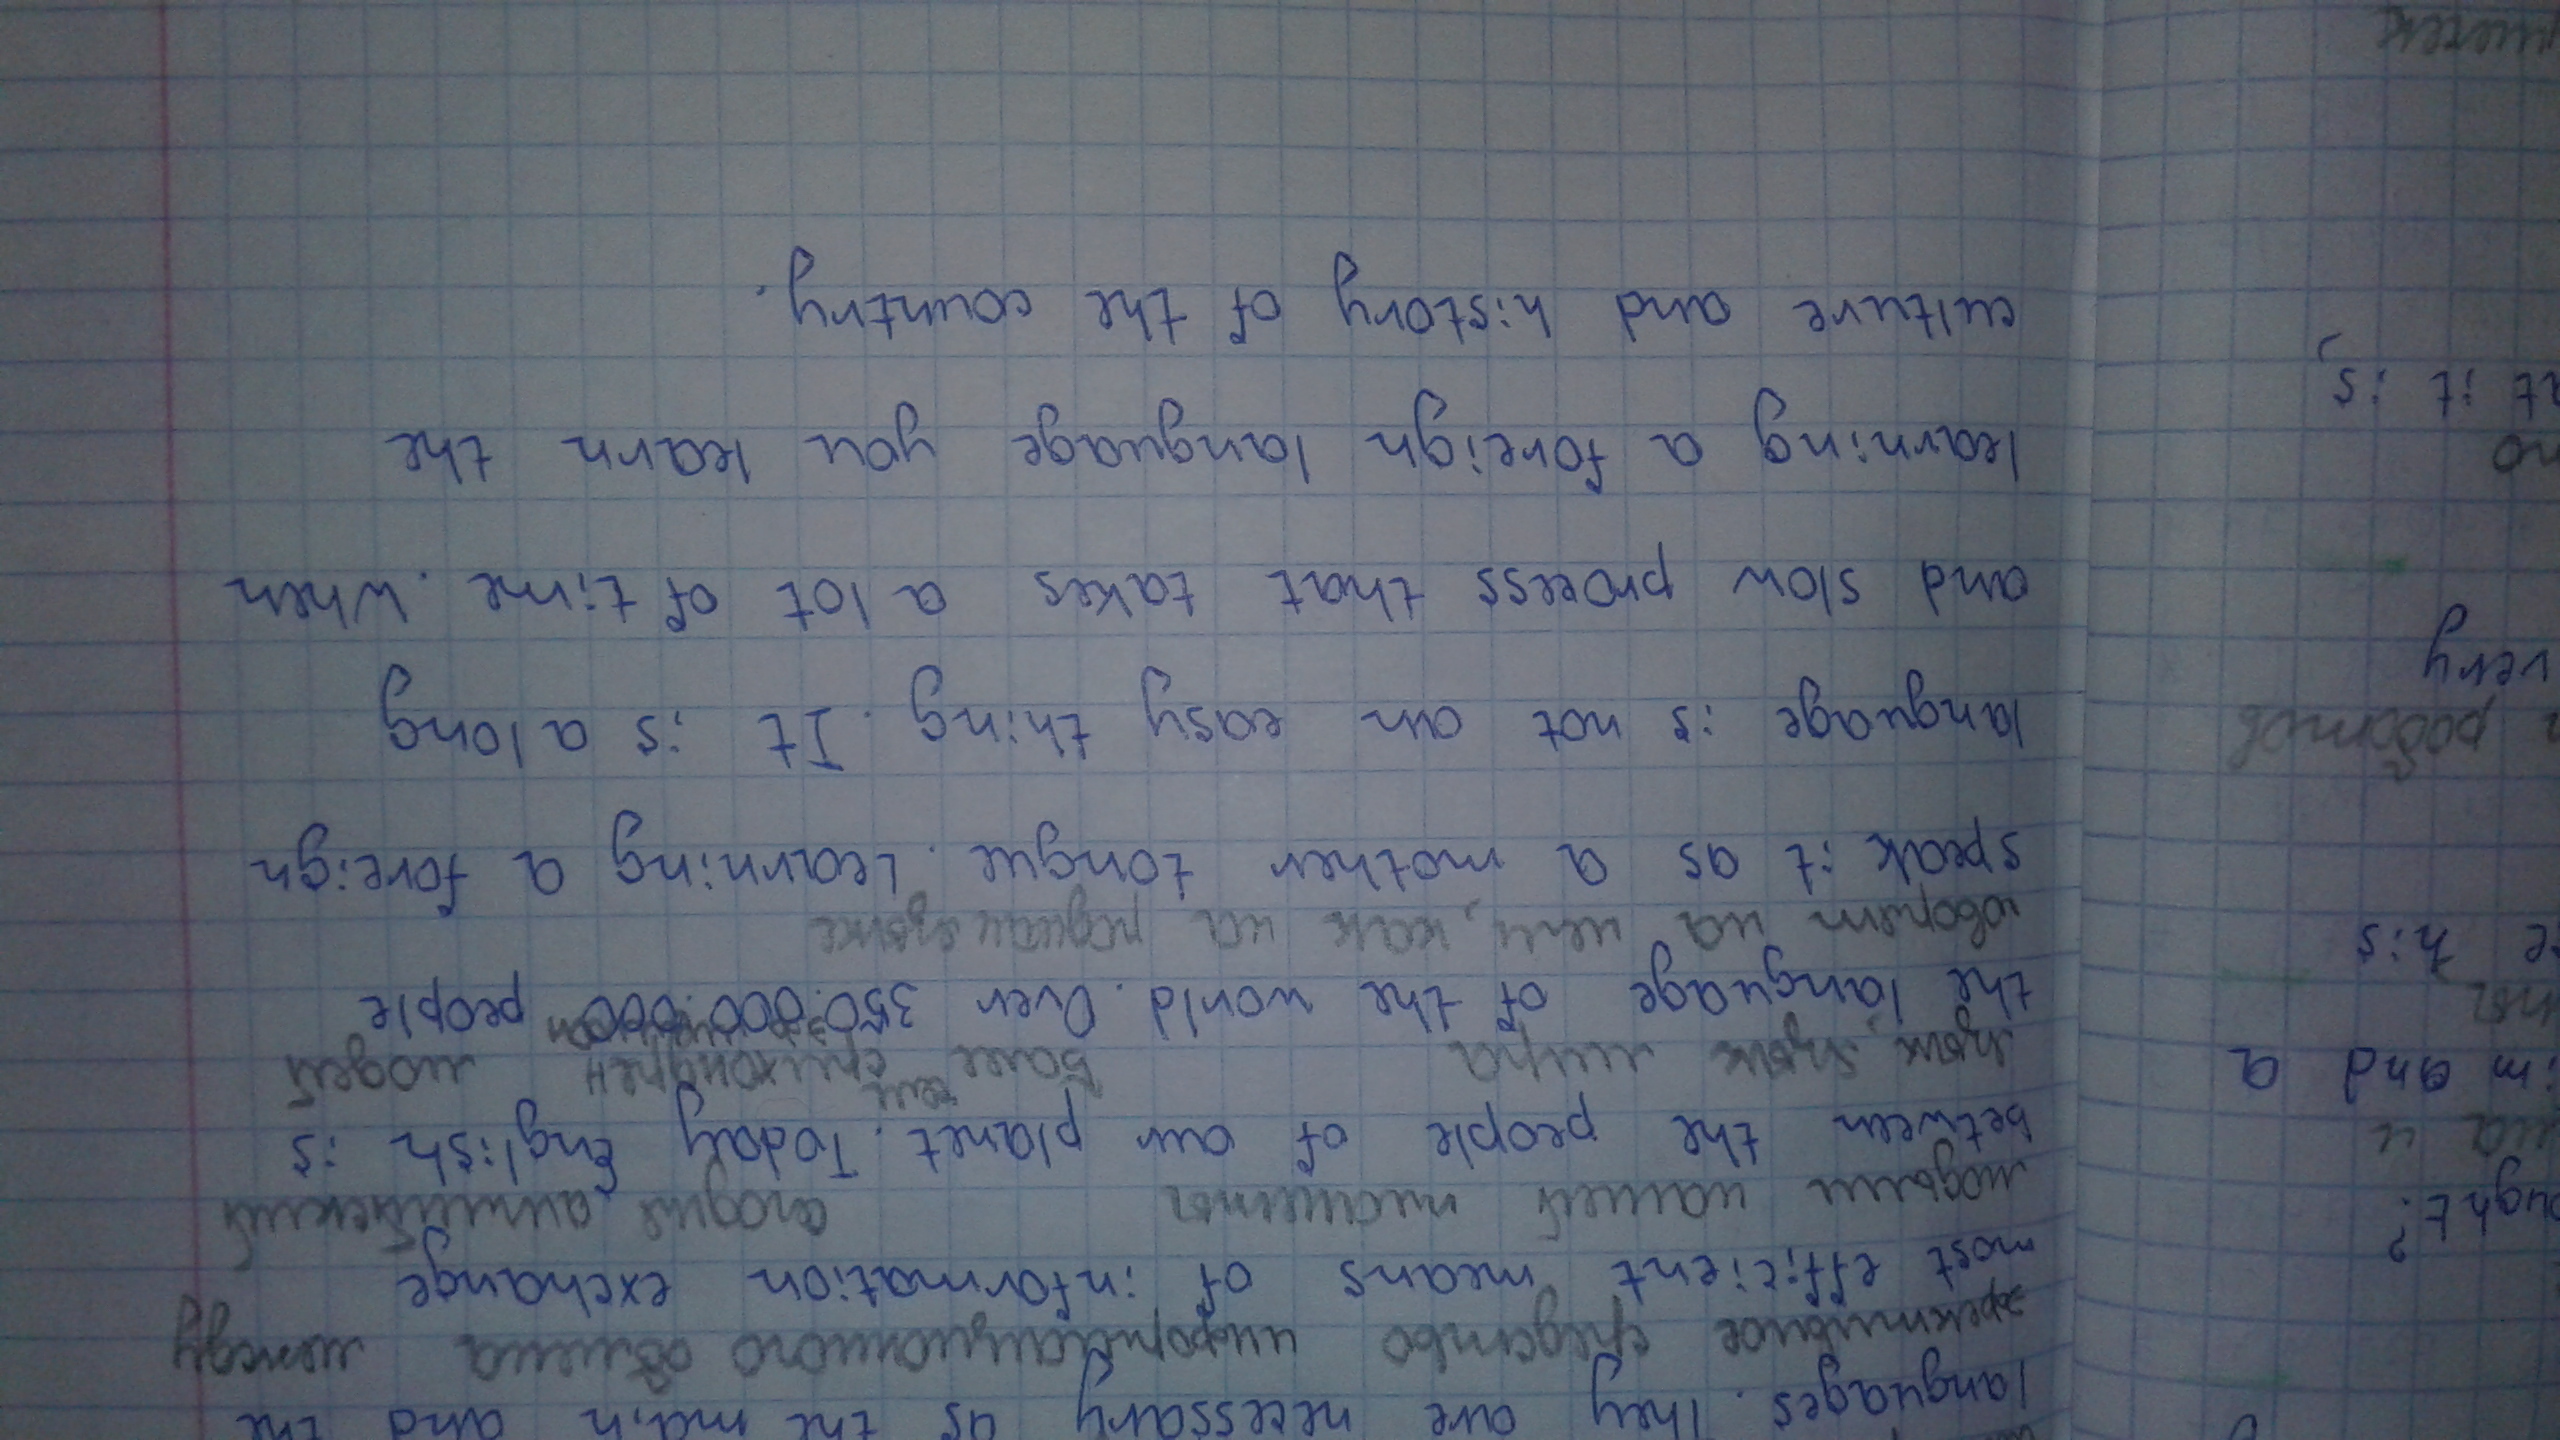 languages. They are necessary as the main and the
эффективное средство информационного обмена между
most efficient means of information exchange
людьми нашей планеты сегодня английский
between the people of our planet. Today English is
язык язык мира Более чем людей
the language of the world. Over 350.000.000 people
говорят на нем, как на родном языке
speak it as a mother tongue. Learning a foreign
language is not an easy thing. It is a long
and slow process that takes a lot of time. When
learning a foreign language you learn the
culture and history of the country.
ought?
im and a
his
very
it is,